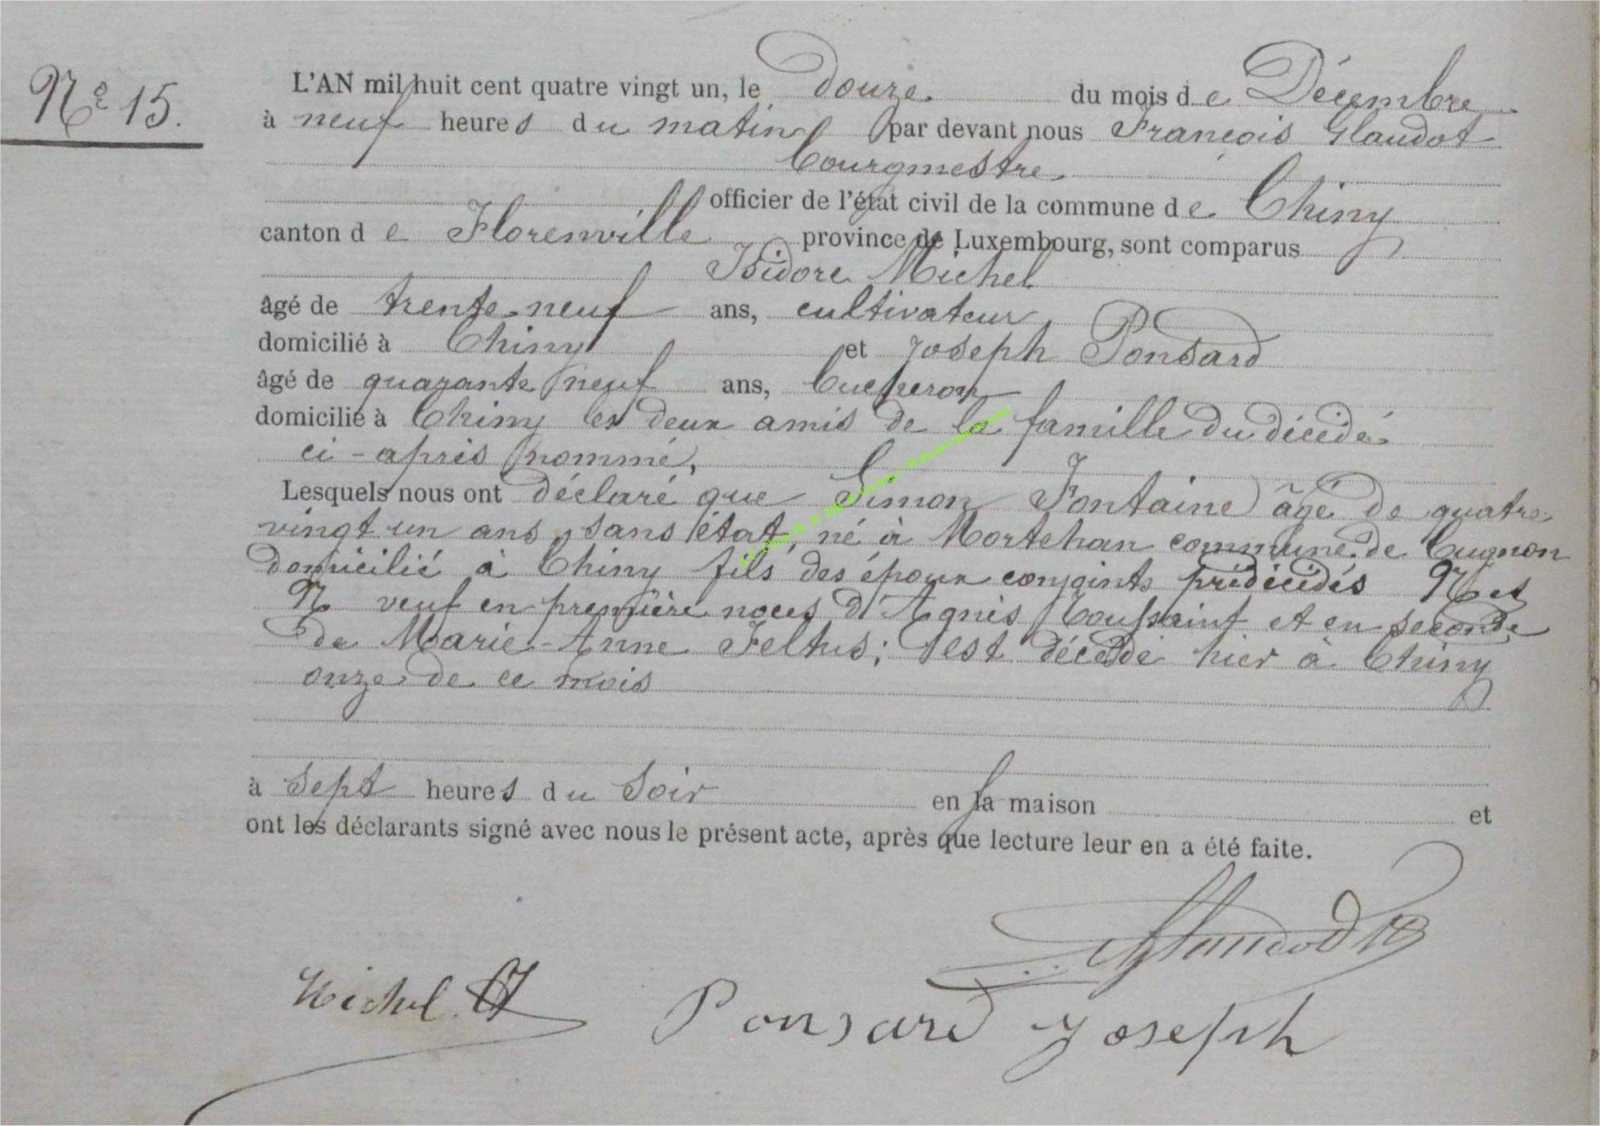 Nº 15.
L'AN mil huit cent quatre vingt un, le douze du mois de Décembre
à neuf heures du matin par devant nous François Glaudot
bourgmestre
officier de l'état civil de la commune de Chiny
canton de Florenville province de Luxembourg, sont comparus
Isidore Michel
âgé de trente-neuf ans, cultivateur
domicilié à Chiny et Joseph Ponsard
âgé de quarante neuf ans, bucheron
domicilié à Chiny les deux amis de la famille du décédé
ci-après nommé,
Lesquels nous ont déclaré que Simon Fontaine âgé de quatre
vingt un ans, sans état, né à Mortehan commune de Cugnon
domicilié à Chiny fils des époux conjoints prédécédés N et
N veuf en première noces d'Agnès Toussaint et en seconde
de Marie-Anne Feltus; est décédé hier à Chiny
onze de ce mois
à sept heures du soir en sa maison et
ont les déclarants signé avec nous le présent acte, après que lecture leur en a été faite.
Glaudot
Michel Ponsard Joseph